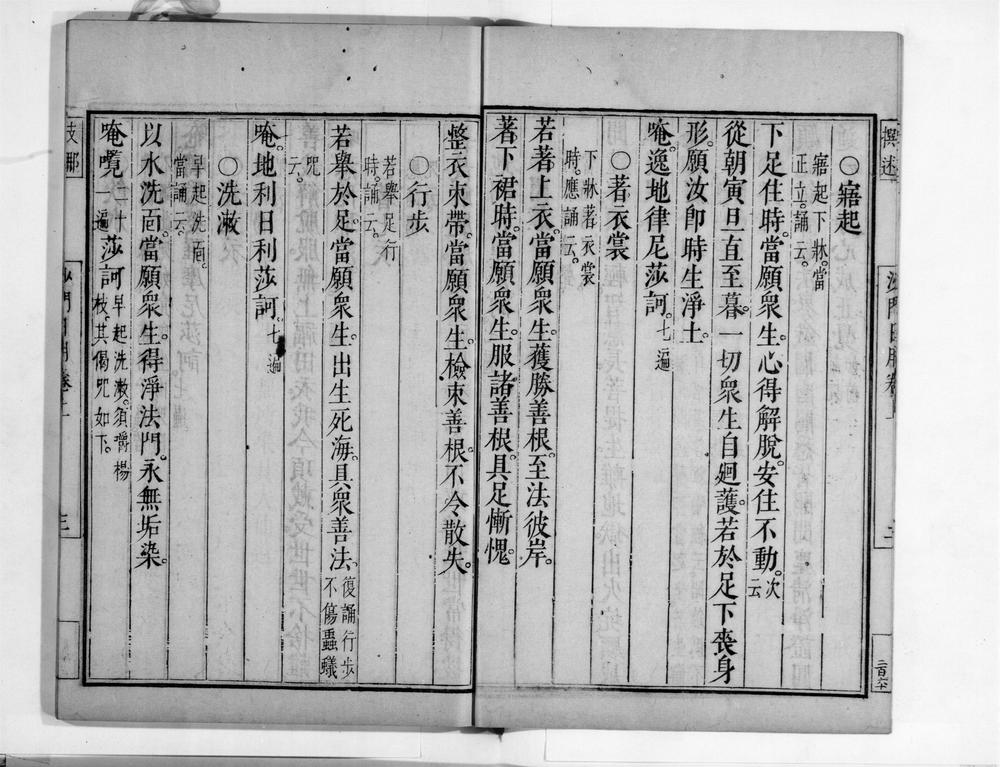 撰述
沙門日用卷上
三
三百六六
○寤起
寤起下牀。當
正立。誦云。
下足住時。當願衆生。心得解脫。安住不動。次云
從朝寅旦直至暮。一切衆生自廻護。若於足下喪身
形。願汝卽時生淨土。
唵。逸地律尼莎訶。七遍
○著衣裳
下牀著衣裳
時。應誦云。
若著上衣。當願衆生。獲勝善根。至法彼岸。
著下裙時。當願衆生。服諸善根。具足慚愧。
整衣束帶。當願衆生。檢束善根。不令散失。
○行步
若舉足行
時。誦云。
若舉於足。當願衆生。出生死海。具衆善法。復誦行步不傷蟲蟻
咒云。
唵。地利日利莎訶。七遍
○洗漱
早起洗面。
當誦云。
以水洗面。當願衆生。得淨法門。永無垢染。
唵㘕二十一遍莎訶早起洗漱。須嚼楊枝其偈咒如下。
支那
沙門日用卷上
三